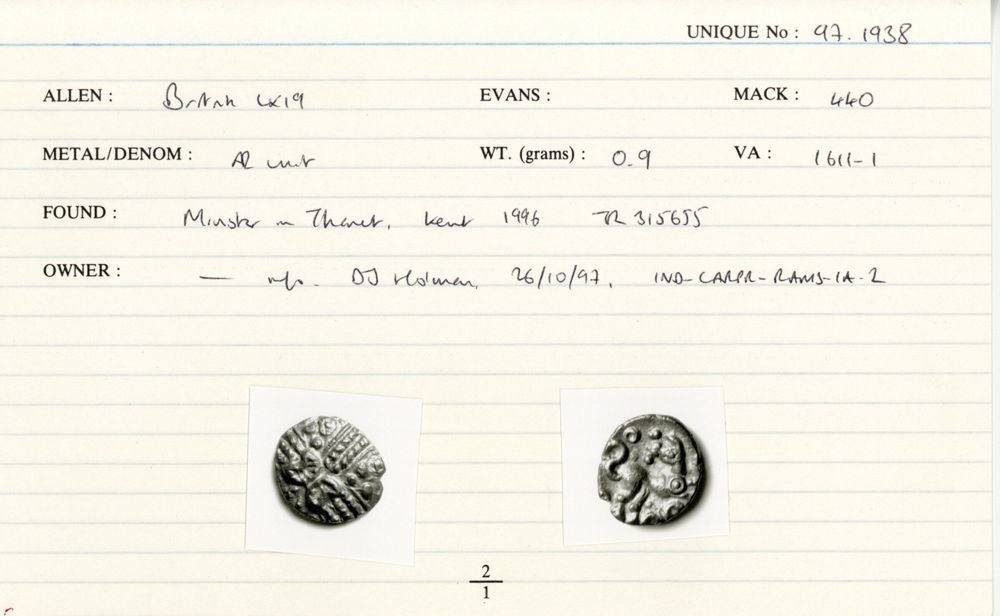 UNIQUE No : 97.1938
ALLEN : British LX19 EVANS : MACK : 440
METAL/DENOM : AR unit WT. (grams) : 0.9 VA : 1611-1
FOUND : Minster in Thanet, Kent 1996 TR 315655
OWNER : — info. DJ Holman, 26/10/97,
2
1